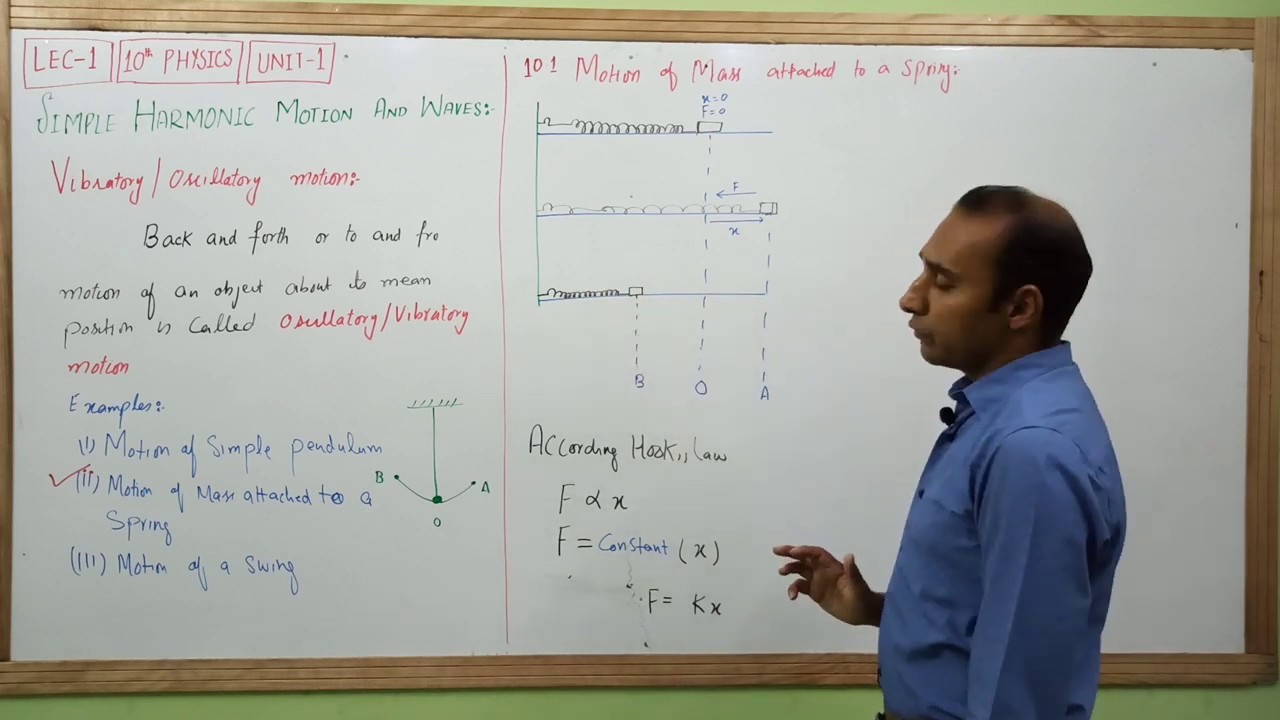 LEC-1 10th PHYSICS UNIT-1
SIMPLE HARMONIC MOTION AND WAVES:-
Vibratory/Oscillatory motion:-
Back and forth or to and fro
motion of an object about its mean
position is called Oscillatory/Vibratory
motion
Examples:-
(I) Motion of Simple pendulum
(II) Motion of Mass attached to a
Spring
(III) Motion of a Swing
B
A
O
10.1 Motion of Mass attached to a Spring:
x=0
F=0
F
x
B O A
ACCording Hook,, Law
F ∝ x
F = Constant (x)
F = Kx